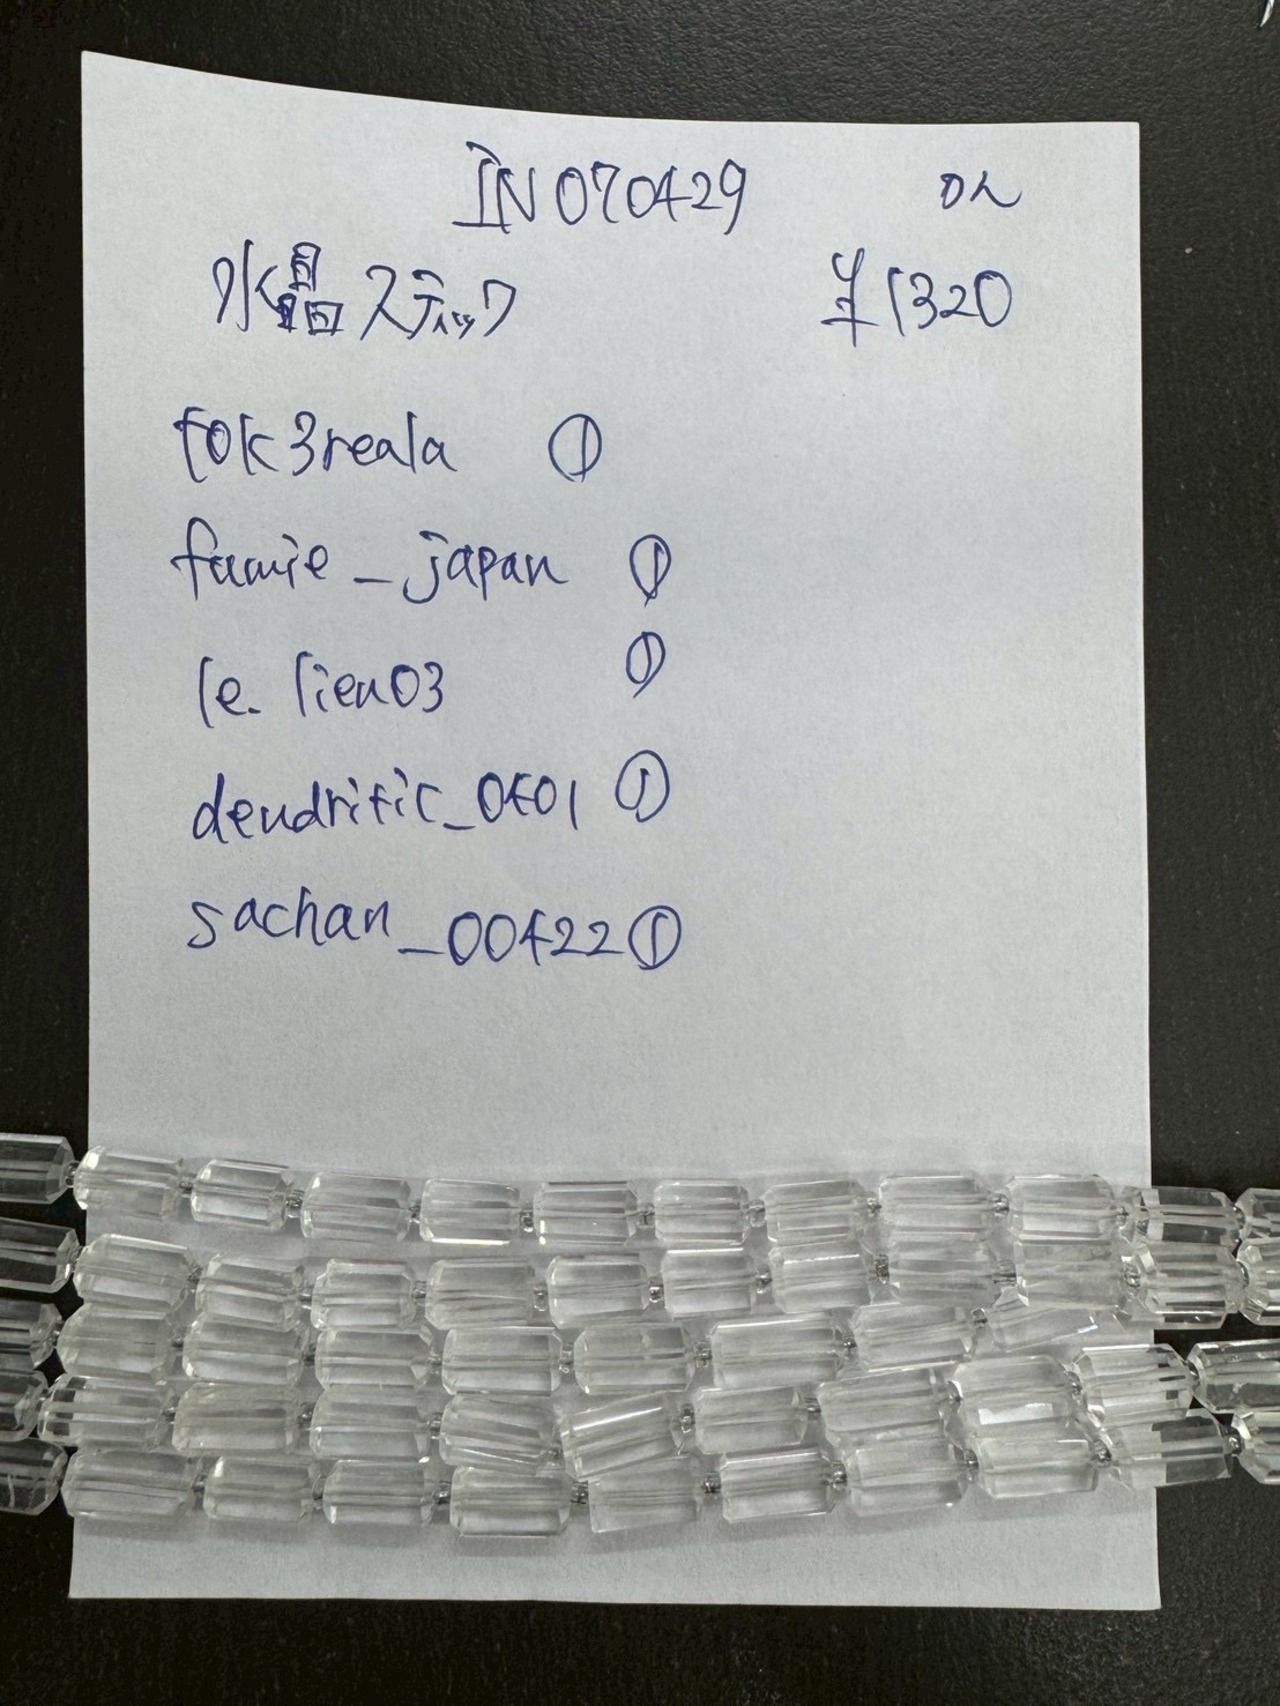 IN070429
水晶スティック ¥1320
tok3reala ①
fumie_japan ①
le.lien03 ①
dendritic_0401 ①
sachan_00422 ①